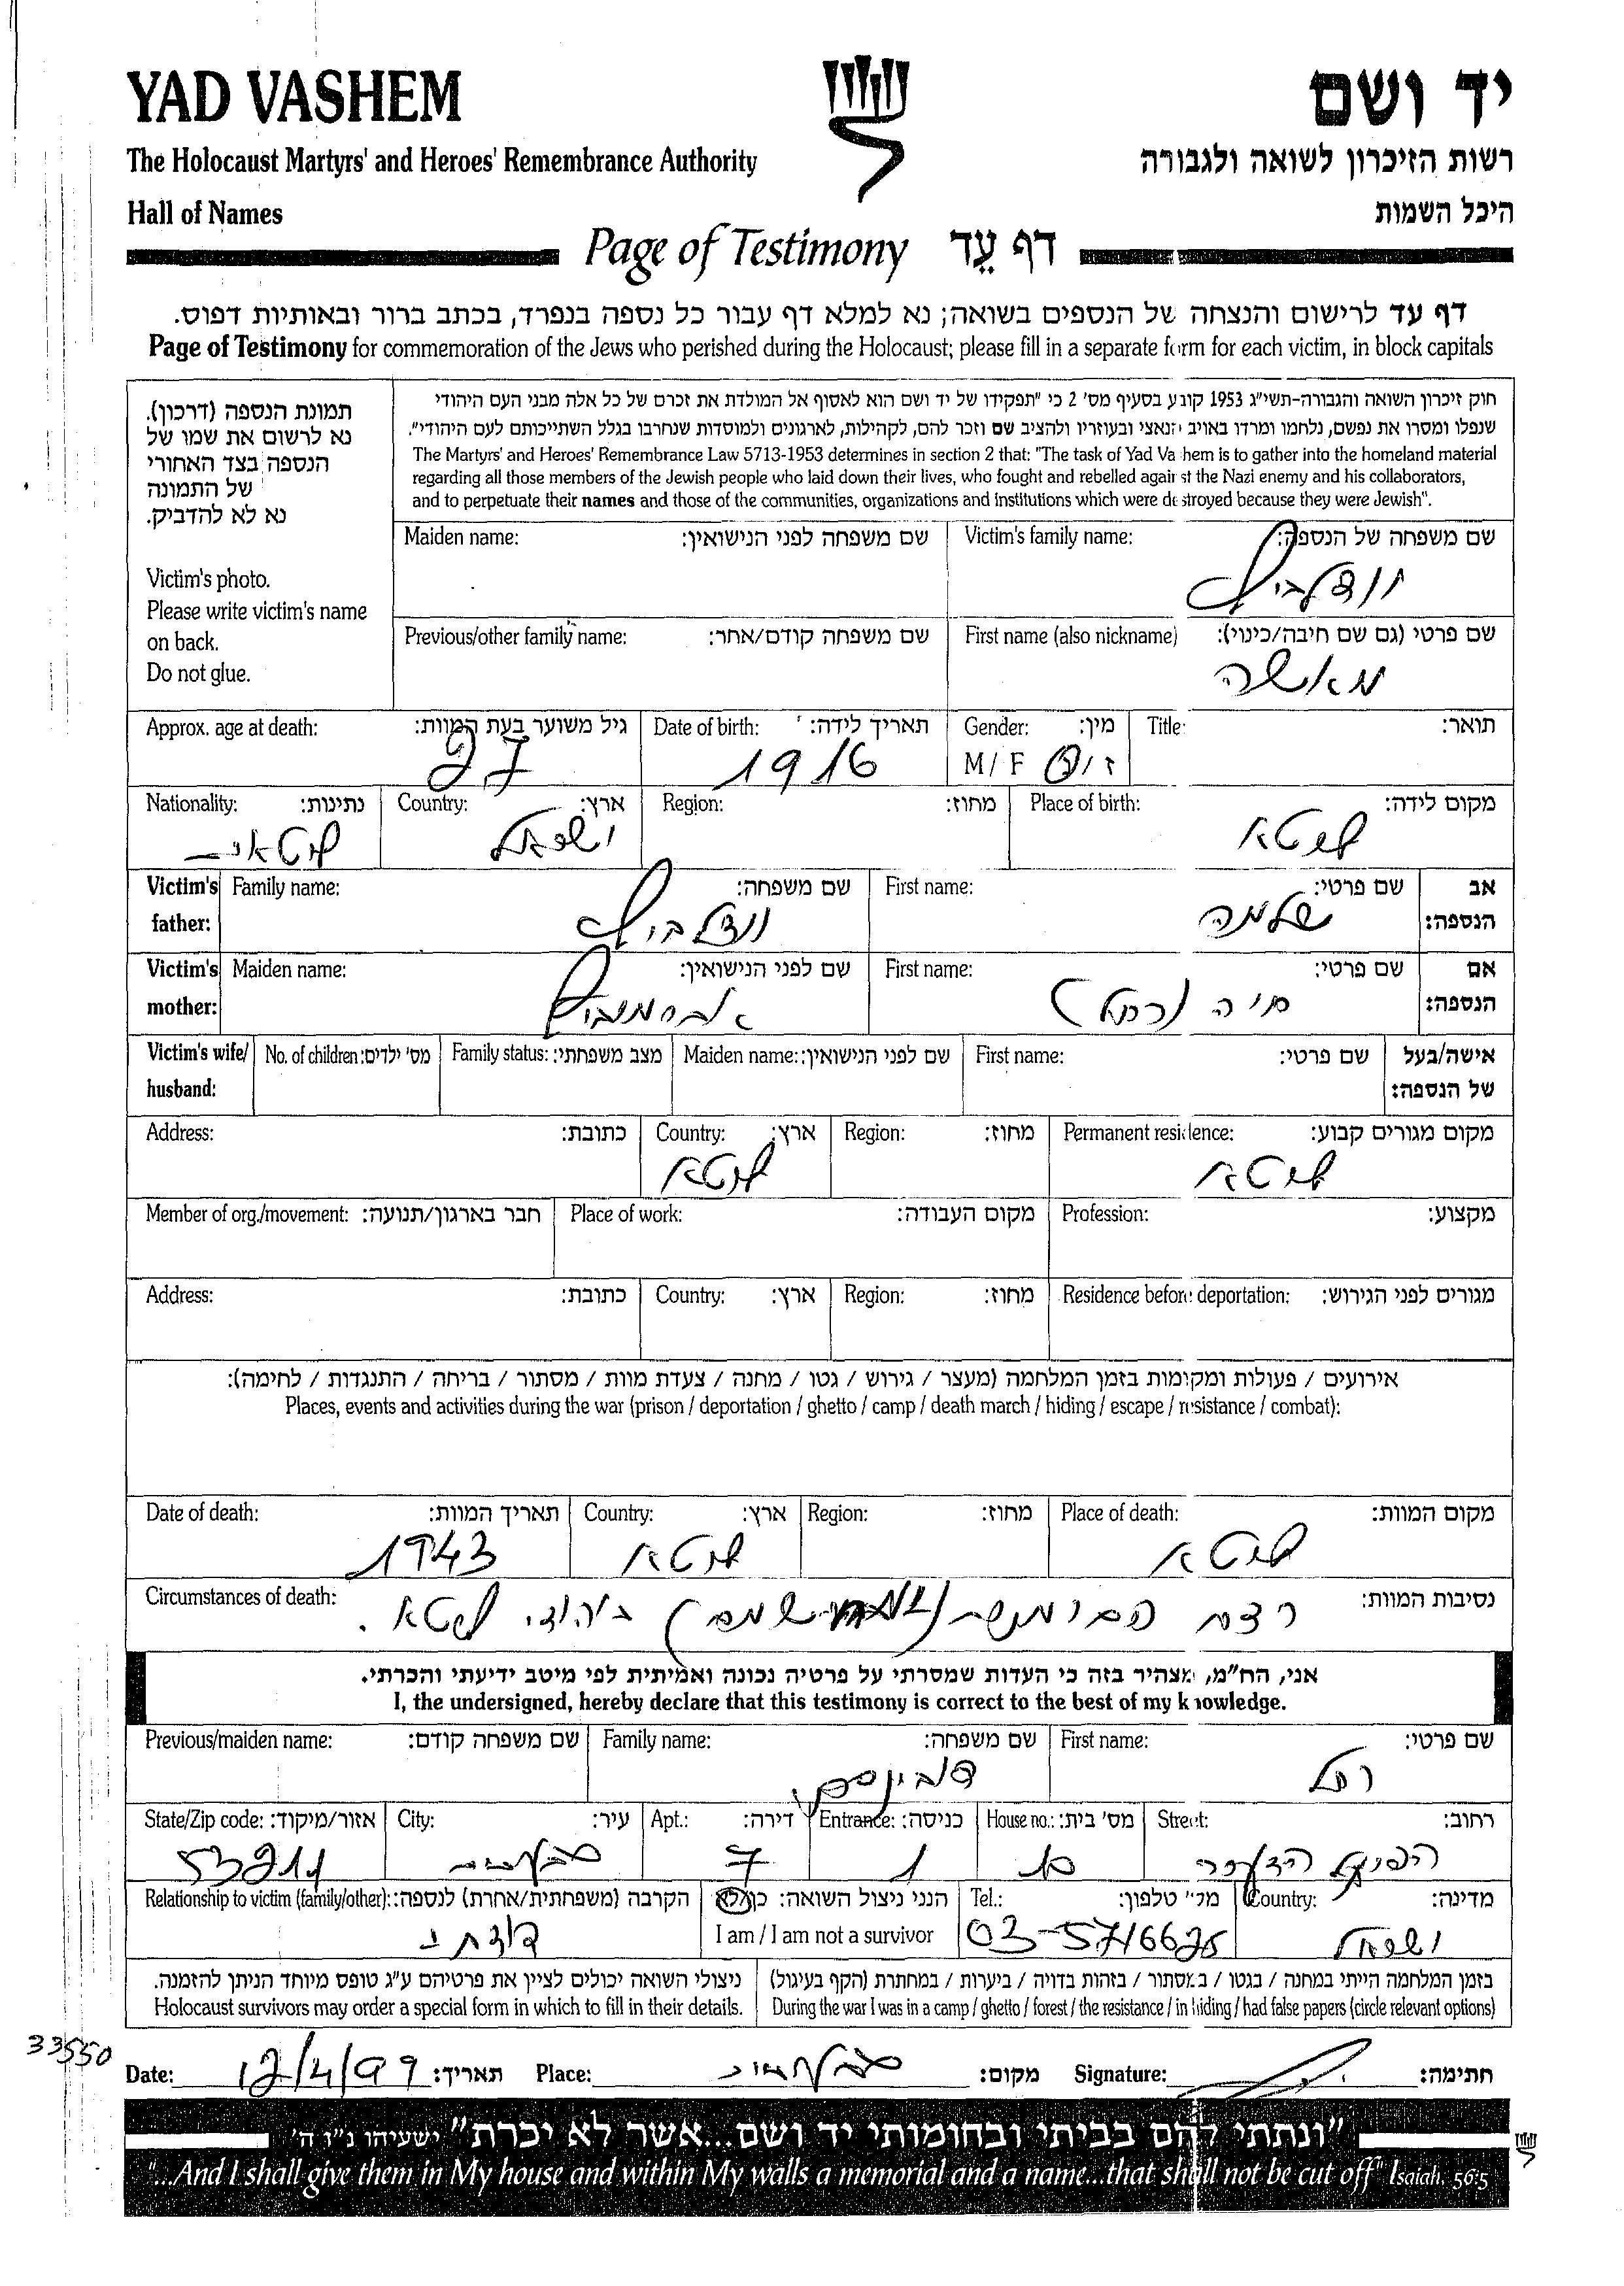 YAD VASHEM
The Holocaust Martyrs' and Heroes' Remembrance Authority
Hall of Names
יד ושם
רשות הזיכרון לשואה ולגבורה
היכל השמות
Page of Testimony דף עֵד
דף עד לרישום והנצחה של הנספים בשואה; נא למלא דף עבור כל נספה בנפרד, בכתב ברור ובאותיות דפוס.
Page of Testimony for commemoration of the Jews who perished during the Holocaust; please fill in a separate form for each victim, in block capitals
תמונת הנספה (דרכון).
נא לרשום את שמו של
הנספה בצד האחורי
של התמונה
נא לא להדביק.
Victim's photo.
Please write victim's name
on back.
Do not glue.
חוק זיכרון השואה והגבורה-תשי"ג 1953 קובע בסעיף מס' 2 כי "תפקידו של יד ושם הוא לאסוף אל המולדת את זכרם של כל אלה מבני העם היהודי
שנפלו ומסרו את נפשם, נלחמו ומרדו באויב הנאצי ובעוזריו ולהציב שם וזכר להם, לקהילות, לארגונים ולמוסדות שנחרבו בגלל השתייכותם לעם היהודי".
The Martyrs' and Heroes' Remembrance Law 5713-1953 determines in section 2 that: "The task of Yad Vashem is to gather into the homeland material
regarding all those members of the Jewish people who laid down their lives, who fought and rebelled against the Nazi enemy and his collaborators,
and to perpetuate their names and those of the communities, organizations and institutions which were destroyed because they were Jewish".
Maiden name: שם משפחה לפני הנישואין: Victim's family name: שם משפחה של הנספה:
Previous/other family name: שם משפחה קודם/אחר: First name (also nickname) שם פרטי (גם שם חיבה/כינוי):
מאשה
Approx. age at death: גיל משוער בעת המוות: Date of birth: תאריך לידה: Gender: מין: Title: תואר:
27 1916 M / F ז / נ
Nationality: נתינות: Country: ארץ: Region: מחוז: Place of birth: מקום לידה:
ישראל
Victim's father: Family name: שם משפחה: First name: שם פרטי: אב הנספה:
שלמה
Victim's mother: Maiden name: שם לפני הנישואין: First name: שם פרטי: אם הנספה:
אברמוביץ חיה (רחל)
Victim's wife/ husband: No. of children: מס' ילדים: Family status: מצב משפחתי: Maiden name: שם לפני הנישואין: First name: שם פרטי: אישה/בעל של הנספה:
Address: כתובת: Country: ארץ: Region: מחוז: Permanent residence: מקום מגורים קבוע:
Member of org./movement: חבר בארגון/תנועה: Place of work: מקום העבודה: Profession: מקצוע:
Address: כתובת: Country: ארץ: Region: מחוז: Residence before deportation: מגורים לפני הגירוש:
אירועים / פעולות ומקומות בזמן המלחמה (מעצר / גירוש / גטו / מחנה / צעדת מוות / מסתור / בריחה / התנגדות / לחימה):
Places, events and activities during the war (prison / deportation / ghetto / camp / death march / hiding / escape / resistance / combat):
Date of death: תאריך המוות: Country: ארץ: Region: מחוז: Place of death: מקום המוות:
1943
Circumstances of death: נסיבות המוות:
רצח
אני, הח"מ, מצהיר בזה כי העדות שמסרתי על פרטיה נכונה ואמיתית לפי מיטב ידיעתי והכרתי.
I, the undersigned, hereby declare that this testimony is correct to the best of my knowledge.
Previous/maiden name: שם משפחה קודם: Family name: שם משפחה: First name: שם פרטי:
רחל
State/Zip code: אזור/מיקוד: City: עיר: Apt.: דירה: Entrance: כניסה: House no.: מס' בית: Street: רחוב:
גבעתיים 7 1
Relationship to victim (family/other): הקרבה (משפחתית/אחרת) לנספה: הנני ניצול השואה: כן/לא Tel.: מס' טלפון: Country: מדינה:
I am / I am not a survivor
דודתי ישראל
ניצולי השואה יכולים לציין את פרטיהם ע"ג טופס מיוחד הניתן להזמנה.
Holocaust survivors may order a special form in which to fill in their details.
בזמן המלחמה הייתי במחנה / בגטו / במסתור / בזהות בדויה / ביערות / במחתרת (הקף בעיגול)
During the war I was in a camp / ghetto / forest / the resistance / in hiding / had false papers (circle relevant options)
33550
Date: 12/4/99 תאריך: Place: גבעתיים מקום: Signature: חתימה:
"ונתתי להם בביתי ובחומותי יד ושם...אשר לא יכרת" ישעיהו נ"ו ה'
"...And I shall give them in My house and within My walls a memorial and a name...that shall not be cut off" Isaiah, 56:5